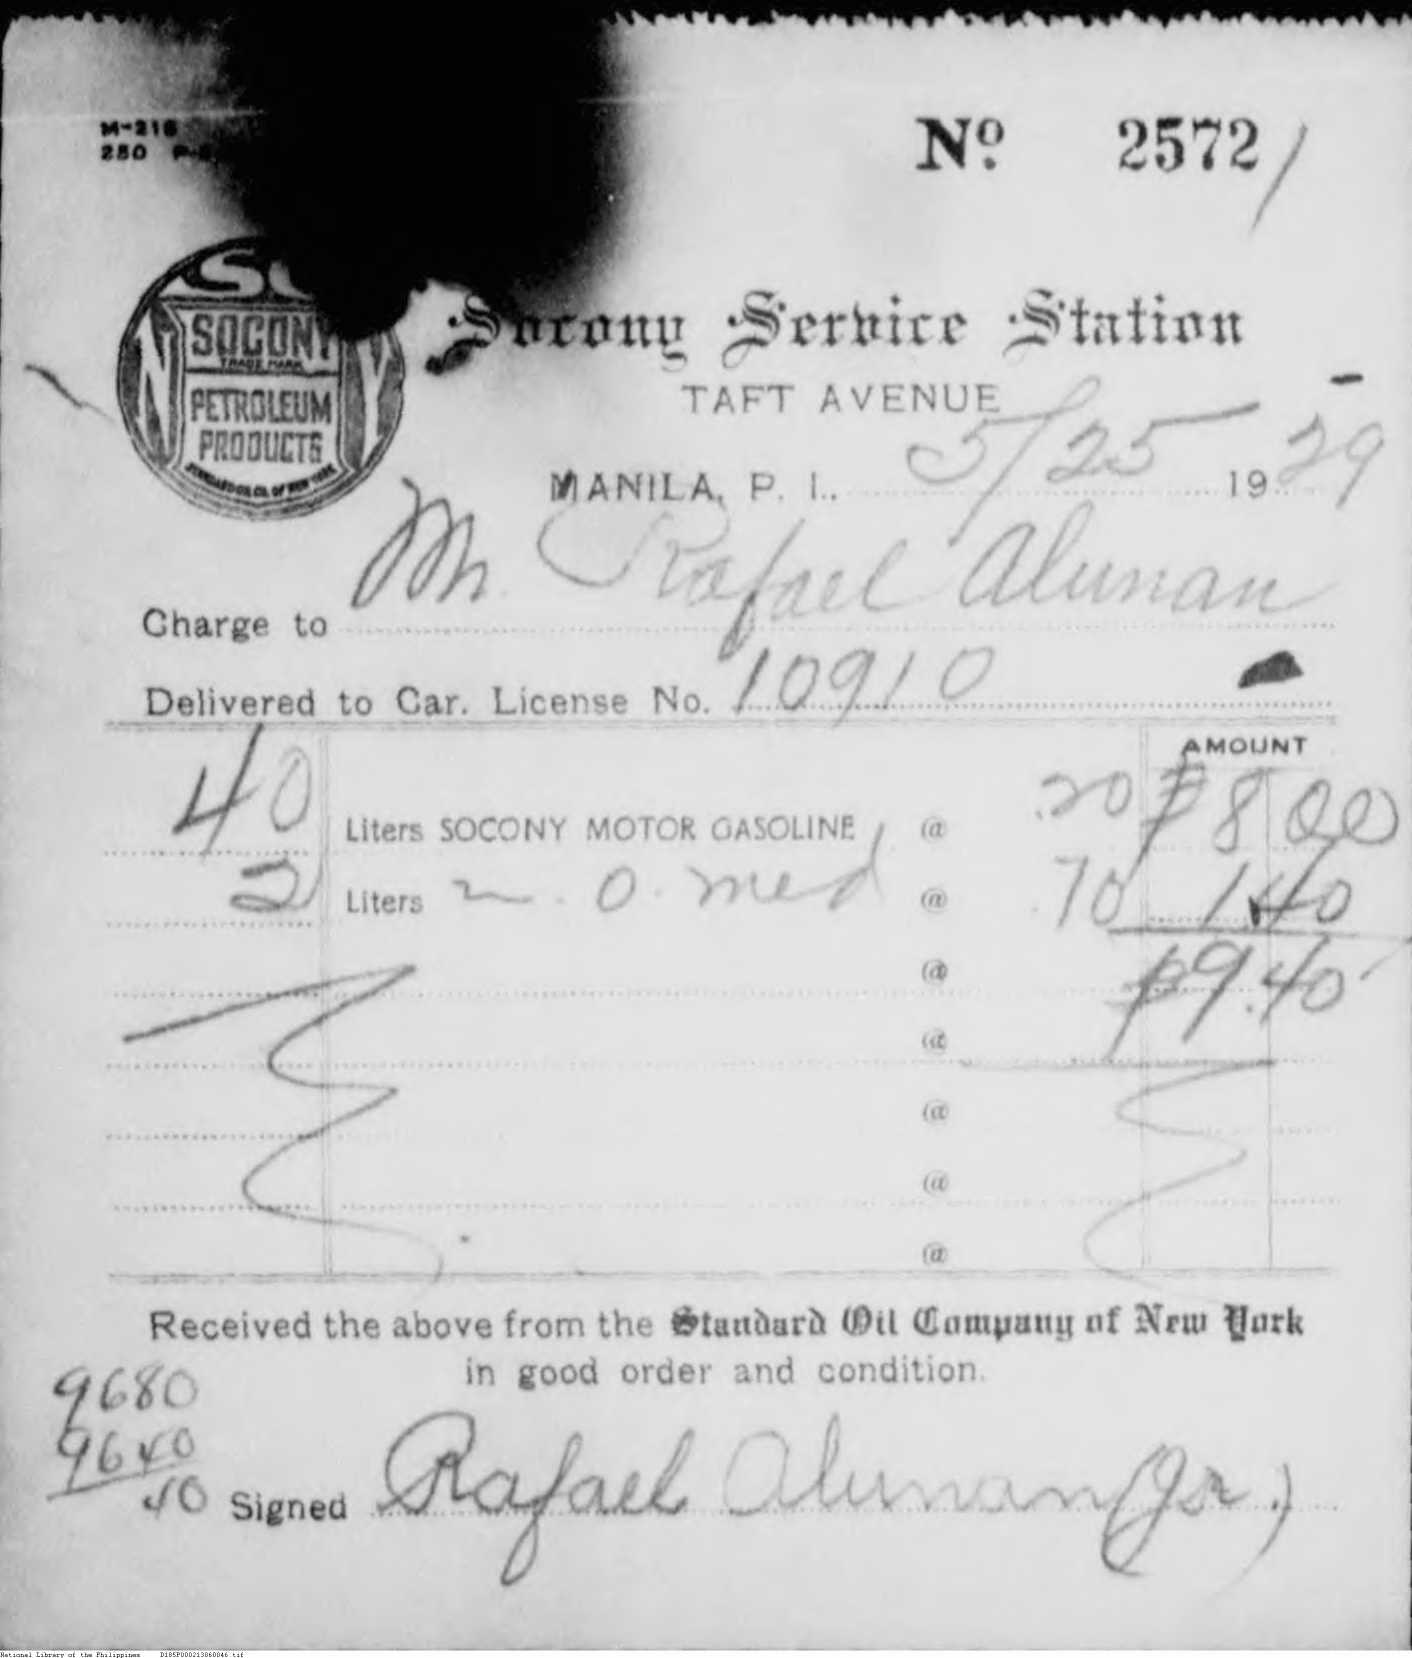 M-216
250 P-
Nº 2572
SOCONY
TRADE MARK
PETROLEUM
PRODUCTS
STANDARD OIL CO. OF NEW YORK
Socony Service Station
TAFT AVENUE
MANILA, P. I., 5/25 1929
Charge to Mr. Rafael Alunan
Delivered to Car. License No. 10910
AMOUNT
40 Liters SOCONY MOTOR GASOLINE @ .20 ₱8 00
2 Liters m. o. med @ .70 1.40
@ ₱9.40
@
@
@
@
Received the above from the Standard Oil Company of New York
in good order and condition.
9680
9640
40
Signed Rafael Alunan (Jr.)
National Library of the Philippines D185P000213060046.tif